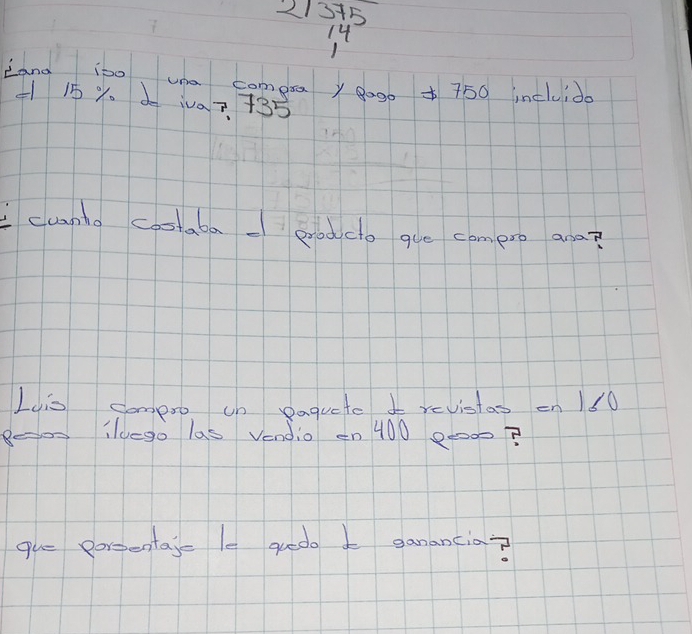 21375
14
1
¿ana iso una compra y pago $ 750 incluido
el 15 % de iva?. 735
¿ cuanto costaba el producto que compro ana?
Luis compro un paquete de revistas en 160
pesos iluego las vendio en 400 pesos?
que porsentaje le quedo de ganancia?